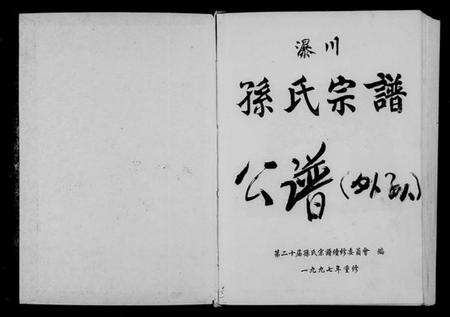 瀑川
孫氏宗譜
公譜(外孙)
第二十届孫氏宗譜續修委員會 編
一九九七年重修